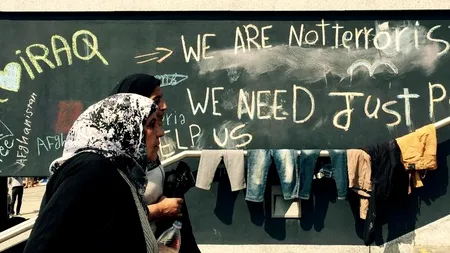 iRAQ
WE ARE NoT Terrōris
WE NEED JusT P
HELP US
Afghanistan
Afgha